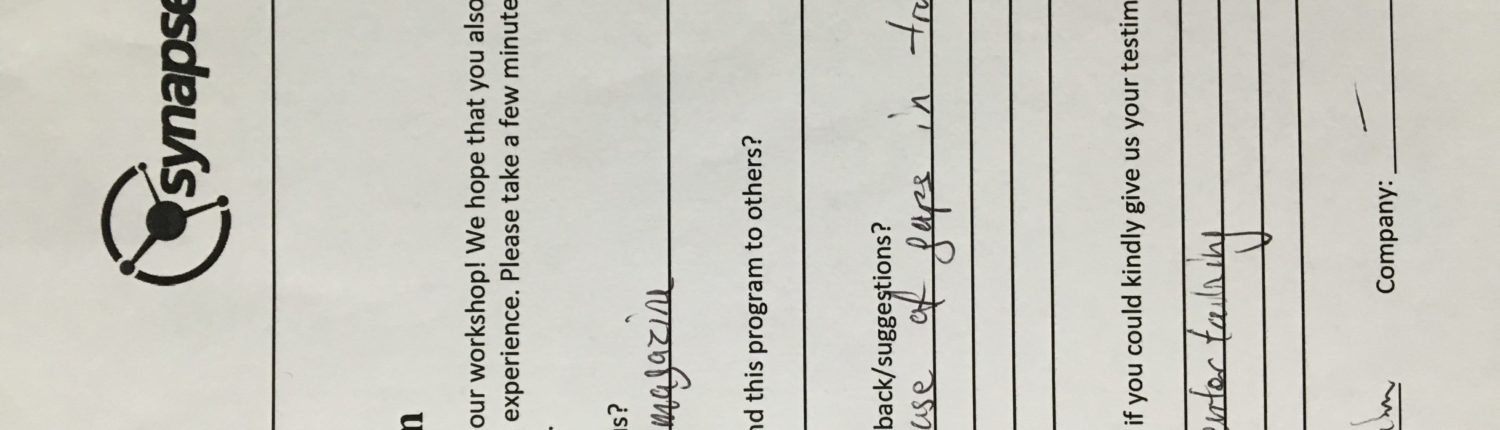 synapse
n
our workshop! We hope that you also
experience. Please take a few minute
.
us?
magazine
nd this program to others?
back/suggestions?
use of gaps in tra
if you could kindly give us your testim
entertaining
Company: —